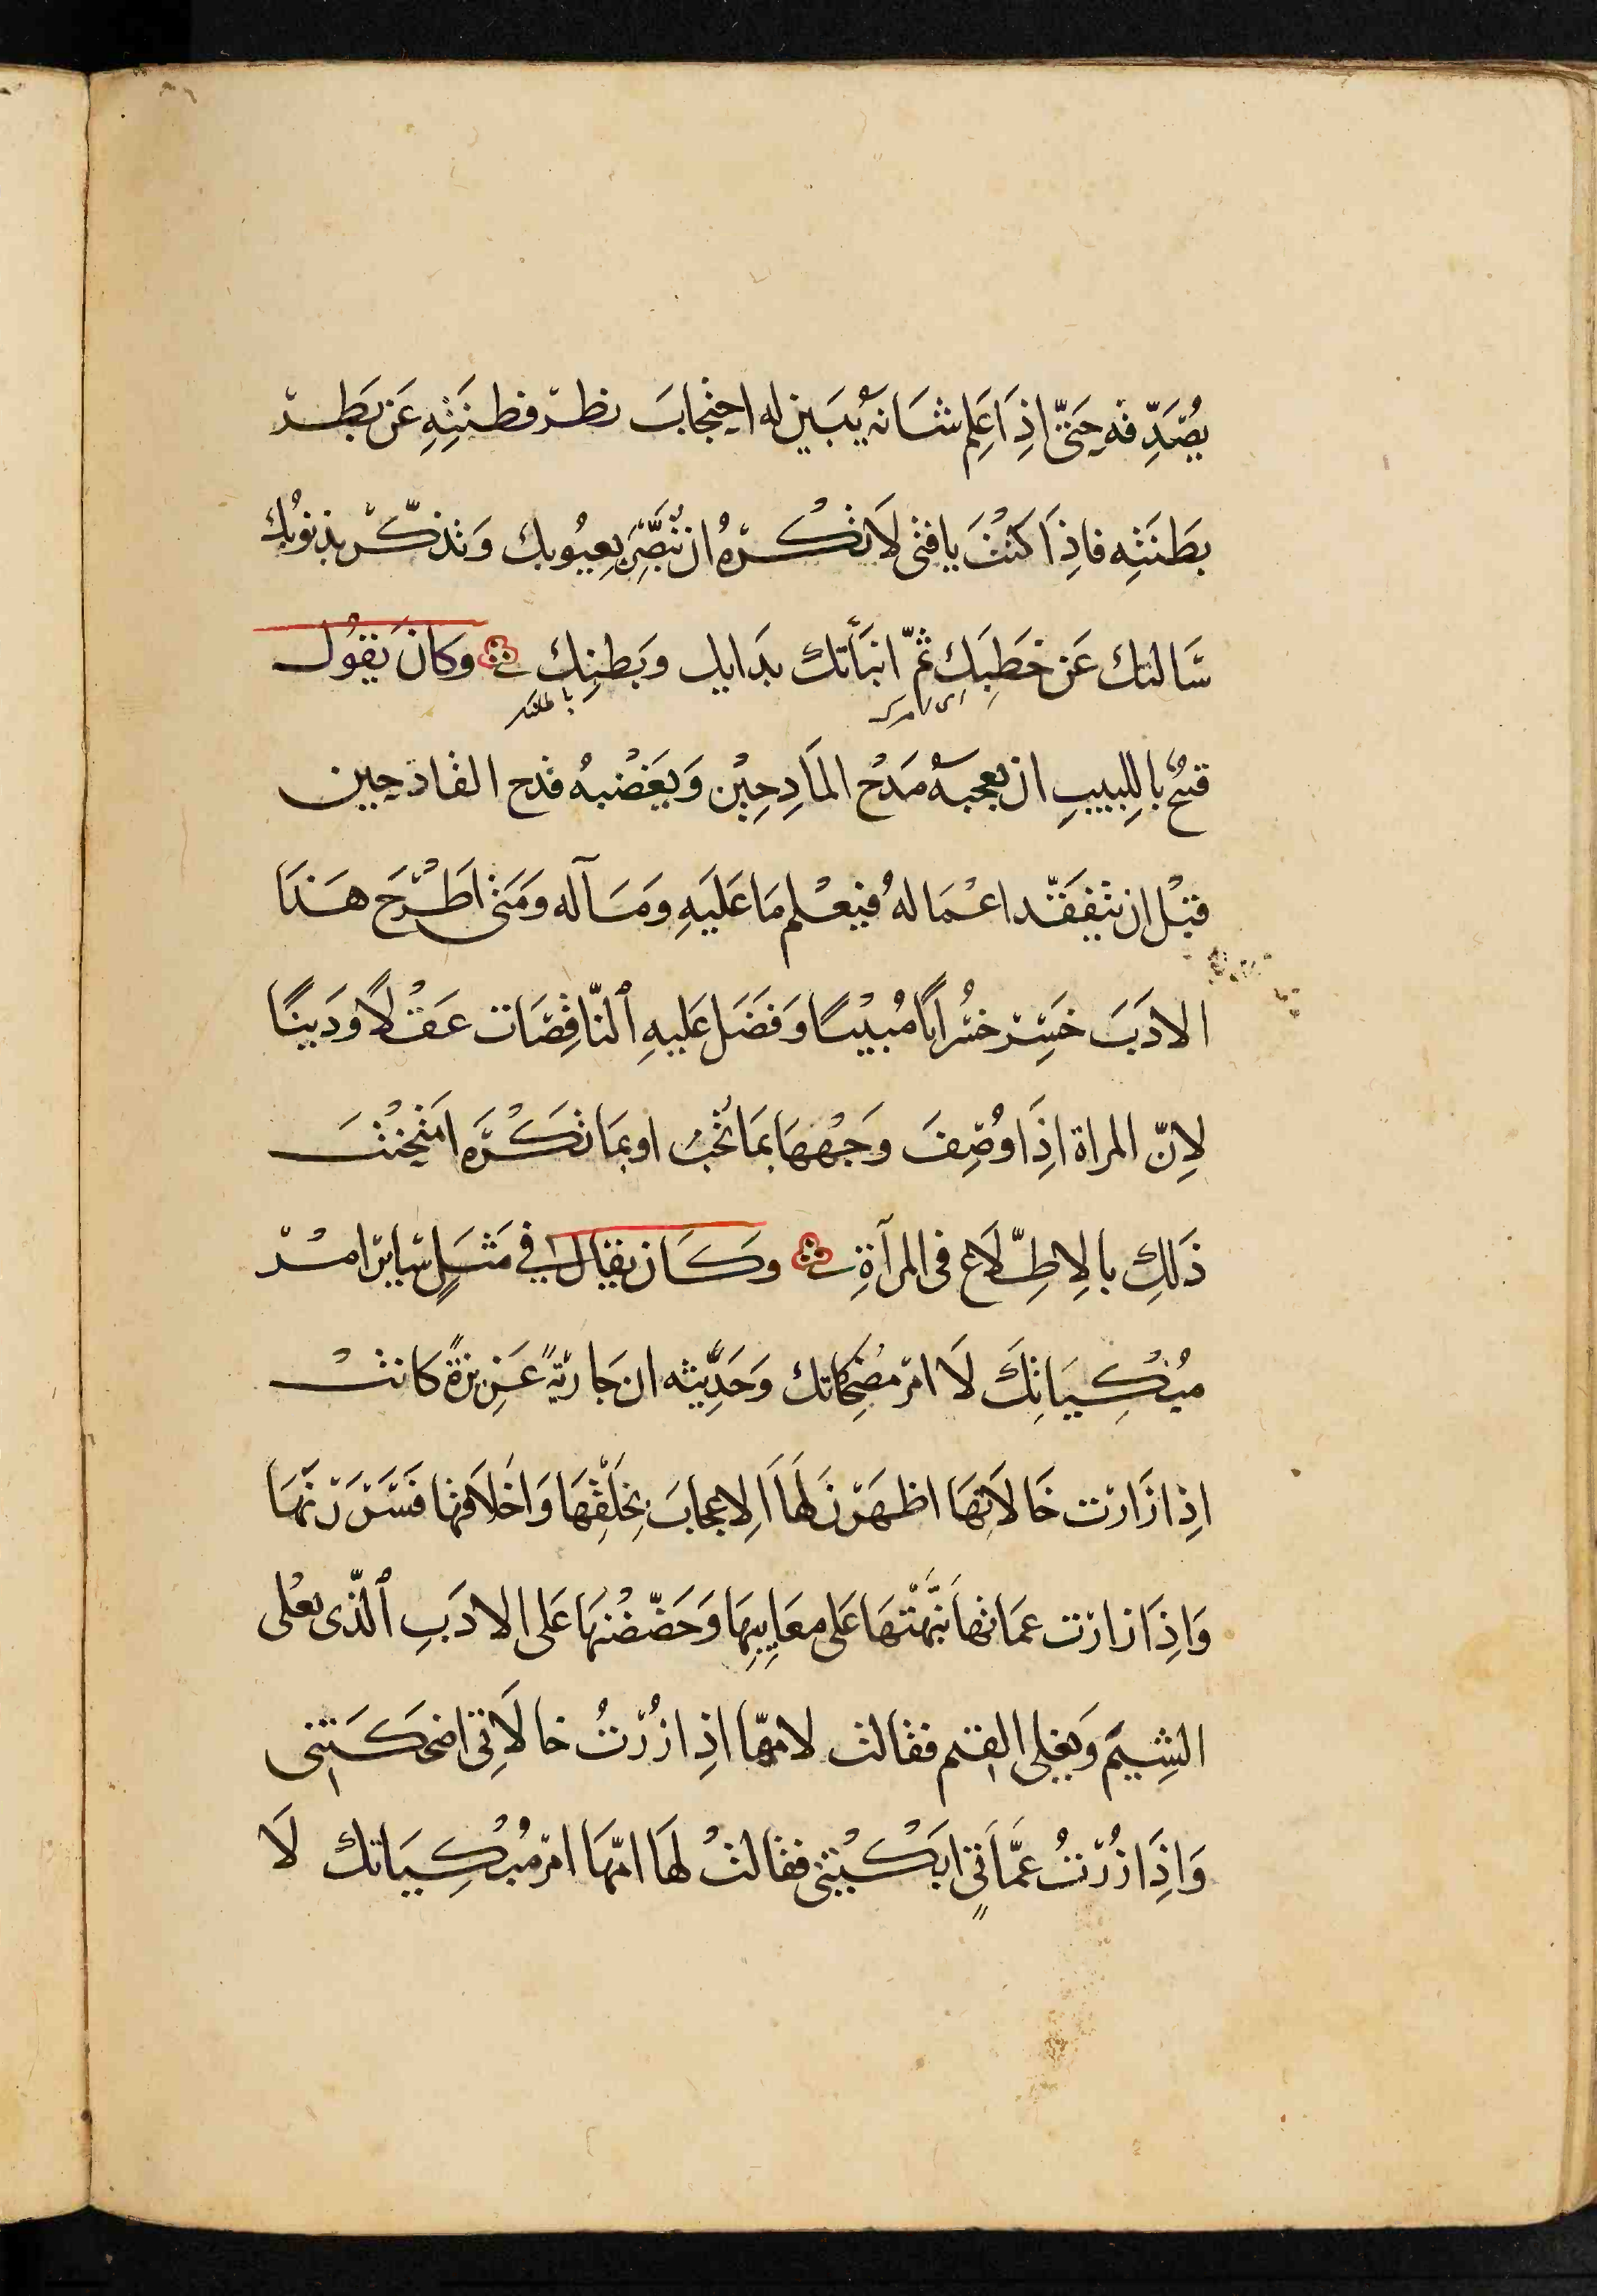 يُصَدِّقه حَتّى اذِا عَلِم شَانهُ يبَين له احتجابَ نظر فطنَتِهِ عَن بَطر
بطَنَتِه فاذِا كنْتَ يا فتى لَا تكْرهُ ان تُبَصَّرَ بعِيُوبك وَتذكّرْ بذنوُبك
سَالتك عَن خَطبِكَ ثمّ انبَأتك بدَايك وبَطنِكَ وَكانَ يقوُل
اى امرك
باطنك
قبْحٌ باللِبيبِ ان يعجبهُ مَدْح المَادِحِيْن وَيَغْضبهُ قدح القادحين
قبْل ان يتفقّد اعْمَالهُ فيعْلم مَا عَلَيهِ ومَا له وَمَتى اطْرَحَ هَذا
الادَبَ خَسِر خُسْرانًا مُبيْنًا وَفَضَل عَليهِ ٱلنّاقِصَات عَقْلًا وَدَينًا
لاِنّ المراة اذِا وُصِفَ وَجْهُهَا بمَا تُحْبُ او بمَا تكْرَه امْتحِنْتَ
ذَلكِ بالاِطِّلَاع فى المرآةِ وكَان يقال في مَثَلٍ سَاير امْر
مُبْكِيَاتِكَ لَا امْر مضْحِكاتك وَحَدِيثه ان جَاريَةً عَزِيزةً كَانتْ
اذِا زَارت خَالَاتهَا اظهَرْن لهَا اَلِاعجابَ بخَلْقِهَا وَاخلَاقهَا فسَرَرْنهَا
وَاذِا زارَت عمَاتهَا نبّهْنَهَا عَلى معَايبِهَا وَحَضّضْنهَا عَلى الادَبِ ٱلّذى يعْلى
الشِيَم وَيغلى القيم فقالت لامّها اذِا زُرْتُ خالَاتِى اضحَكَتنِى
وَاذَا زُرْتُ عَمَّاتِى ابَكْيْنَنى فقالتْ لهَا امّهَا امْر مُبْكِيَاتك لَا